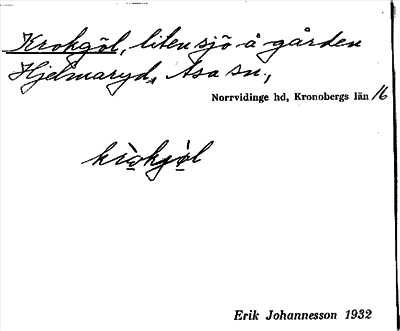 Krokgöl, liten sjö å gården
Hjelmaryd, Asa sn.,
Norrvidinge hd, Kronobergs län 16
kròkgjòl
Erik Johannesson 1932